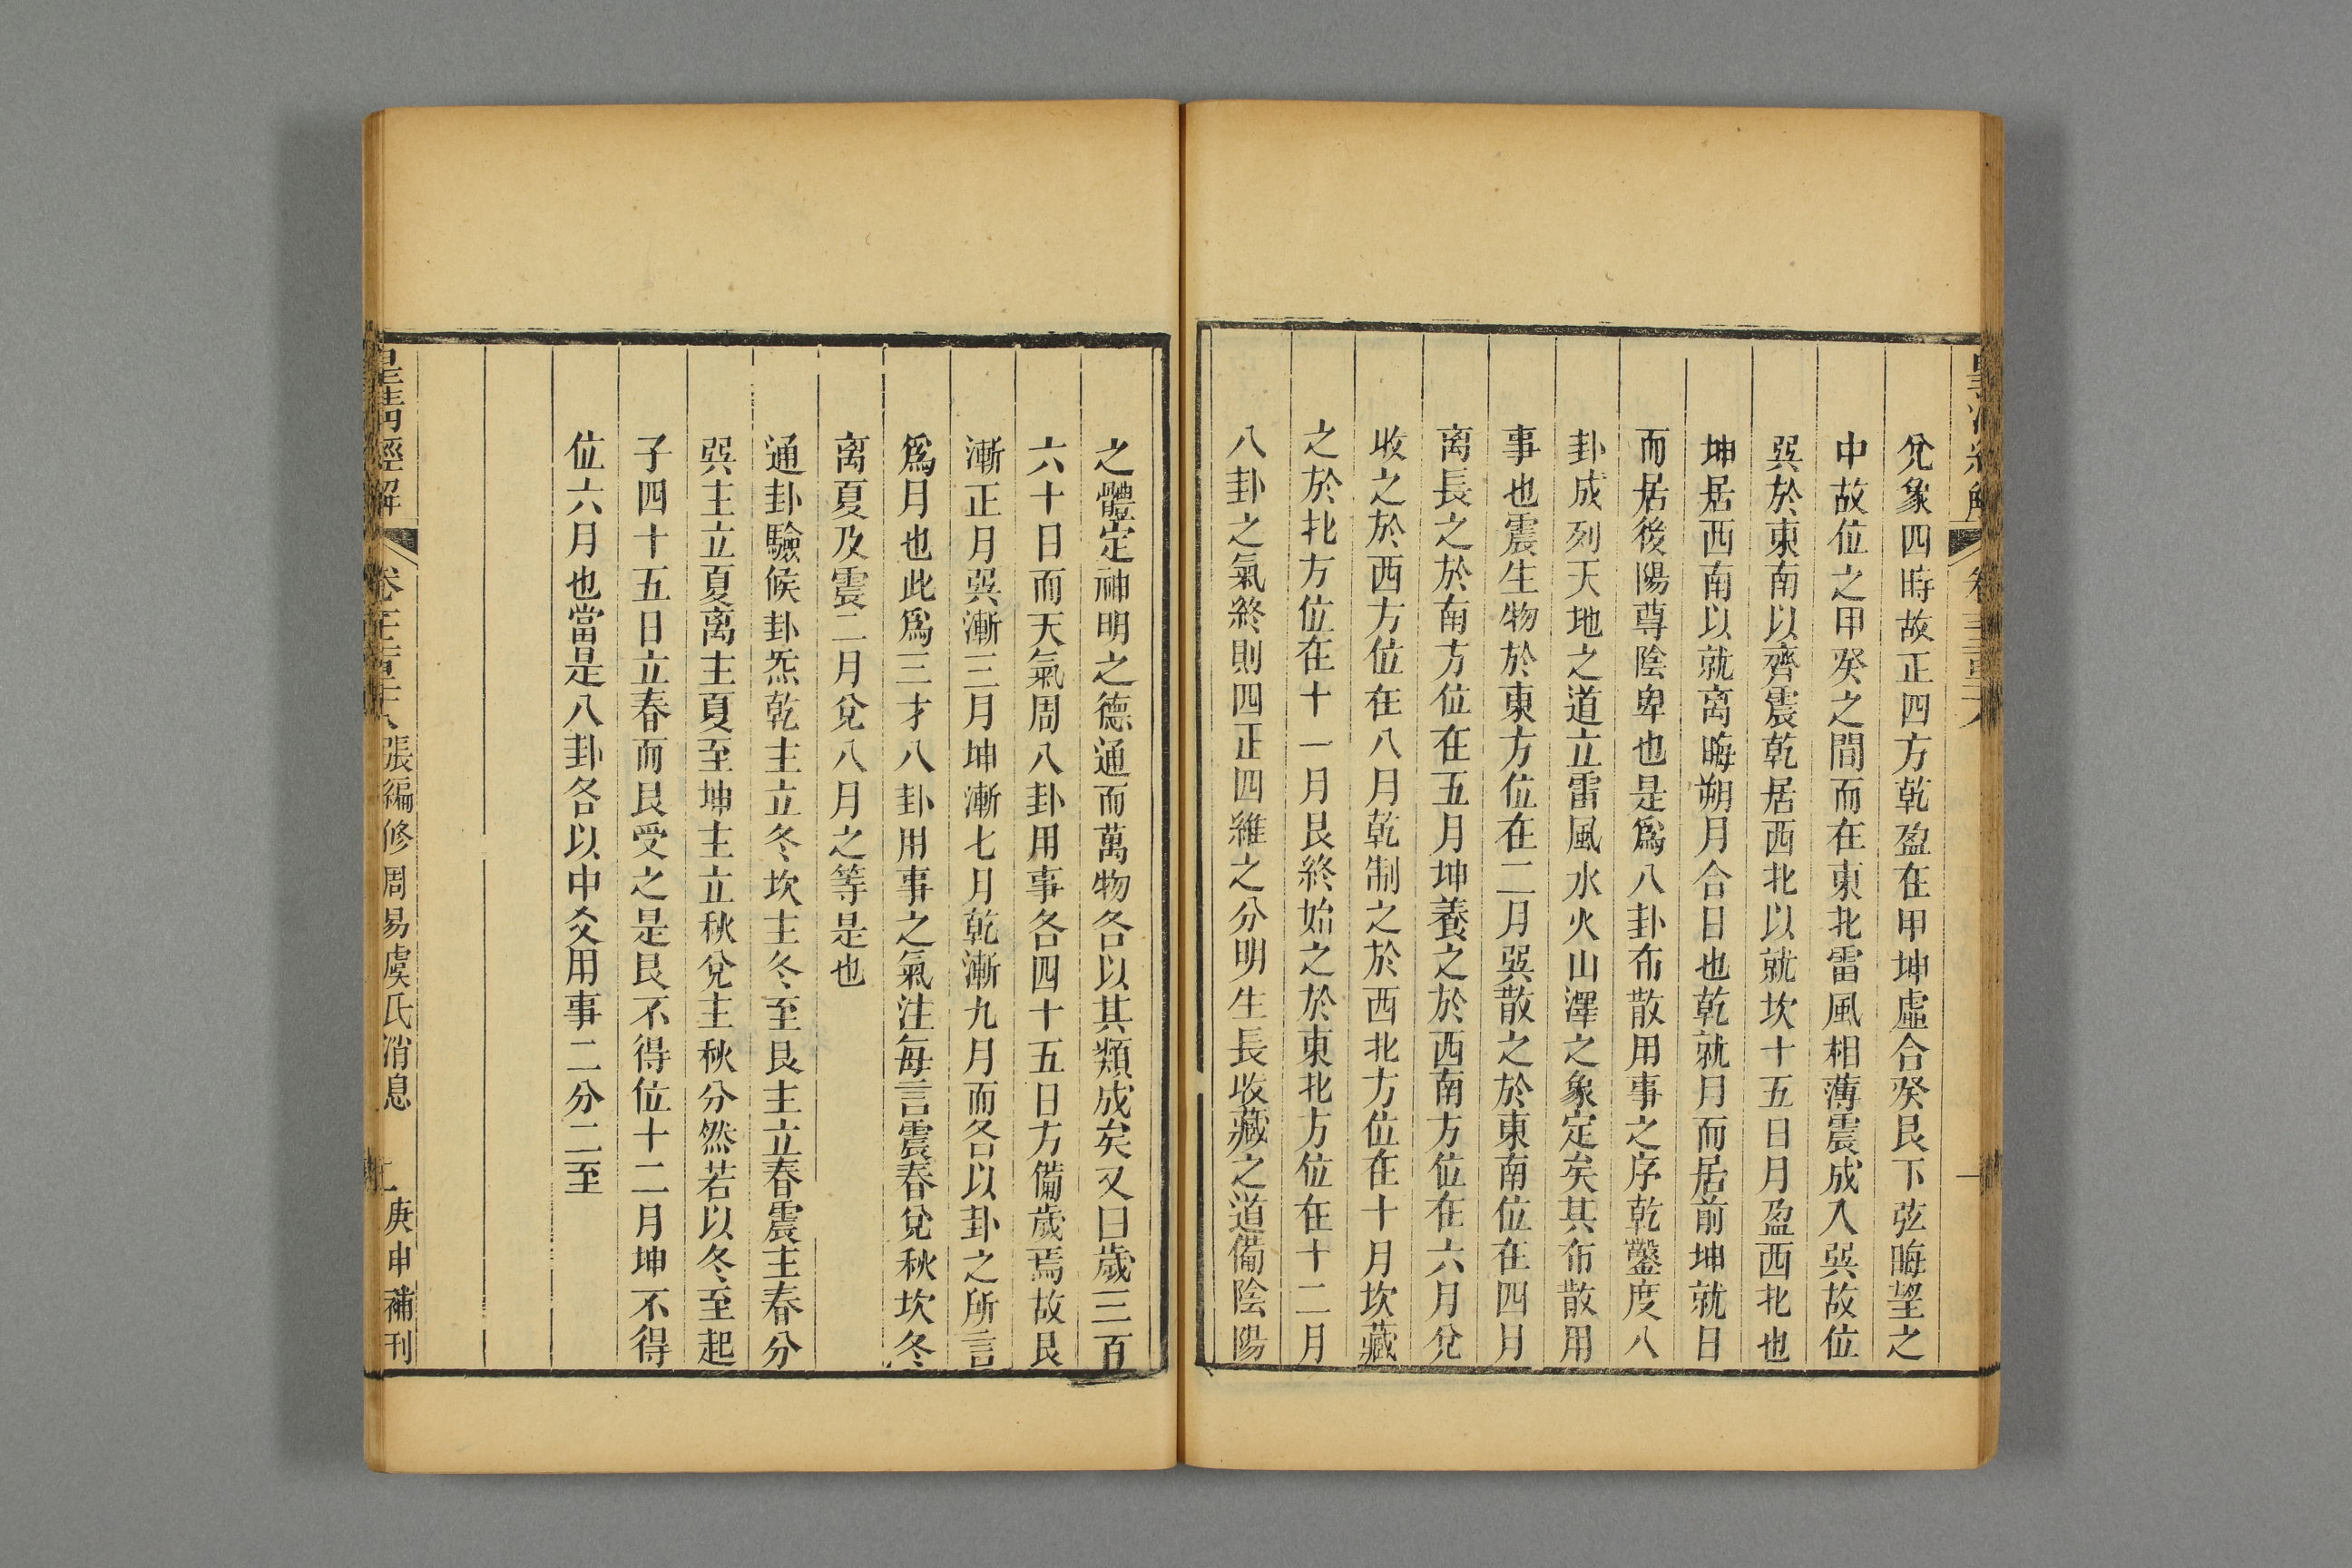 兌象四時故正四方乾盈在甲坤虛合癸艮下弦晦望之
中故位之甲癸之間而在東北雷風相薄震成入巽故位
巽於東南以齊震乾居西北以就坎十五日月盈西北也
坤居西南以就离晦朔月合日也乾就月而居前坤就日
而居後陽尊陰卑也是爲八卦布散用事之序乾鑿度八
卦成列天地之道立雷風水火山澤之象定矣其布散用
事也震生物於東方位在二月巽散之於東南位在四月
离長之於南方位在五月坤養之於西南方位在六月兌
收之於西方位在八月乾制之於西北方位在十月坎藏
之於北方位在十一月艮終始之於東北方位在十二月
八卦之氣終則四正四維之分明生長收藏之道備陰陽
之體定神明之德通而萬物各以其類成矣又曰歲三百
六十日而天氣周八卦用事各四十五日方備歲焉故艮
漸正月巽漸三月坤漸七月乾漸九月而各以卦之所言
爲月也此爲三才八卦用事之氣注每言震春兌秋坎冬
离夏及震二月兌八月之等是也
通卦驗候卦炁乾主立冬坎主冬至艮主立春震主春分
巽主立夏离主夏至坤主立秋兌主秋分然若以冬至起
子四十五日立春而艮受之是艮不得位十二月坤不得
位六月也當是八卦各以中爻用事二分二至
皇淸經解
張編修周易虞氏消息
庚申補刊